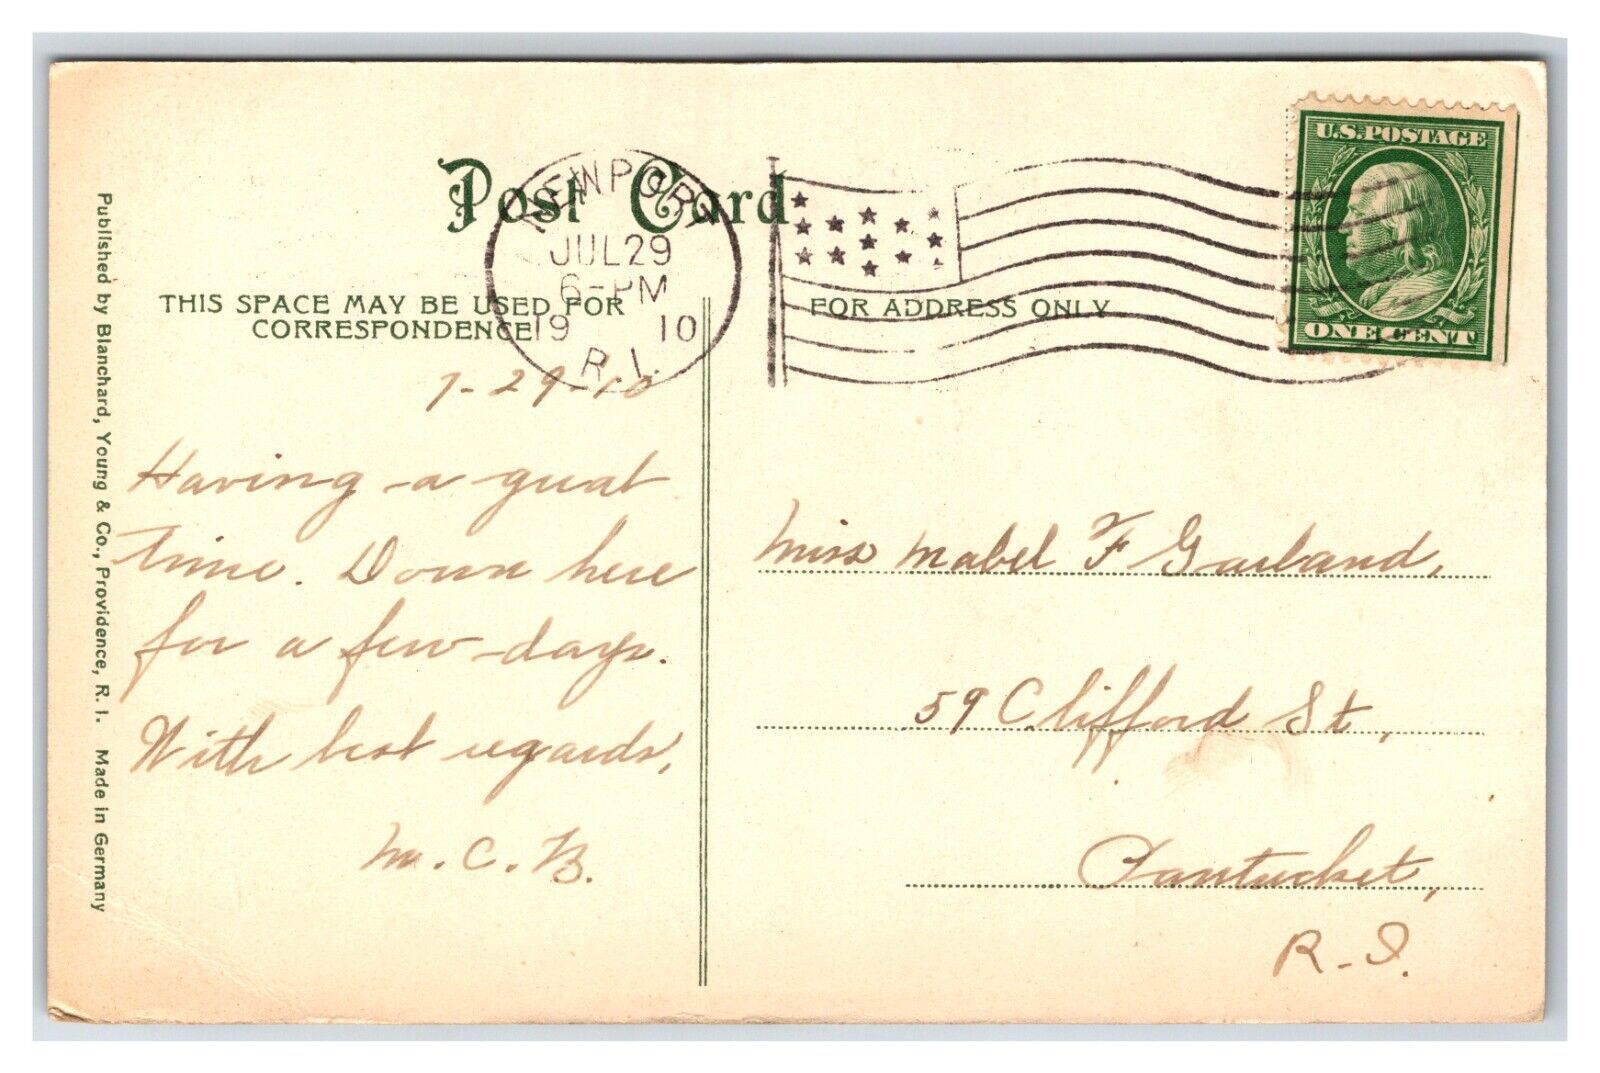 Post Card
NEWPORT
JUL 29
6-PM
19 10
R.I.
U.S. POSTAGE
ONE CENT
THIS SPACE MAY BE USED FOR
CORRESPONDENCE
FOR ADDRESS ONLY
7-29-10
Having a great
time. Down here
for a few days.
With best regards,
M. C. B.
Miss Mabel F Garland,
59 Clifford St,
Pawtucket,
R. I.
Published by Blanchard, Young & Co., Providence, R. I. Made in Germany